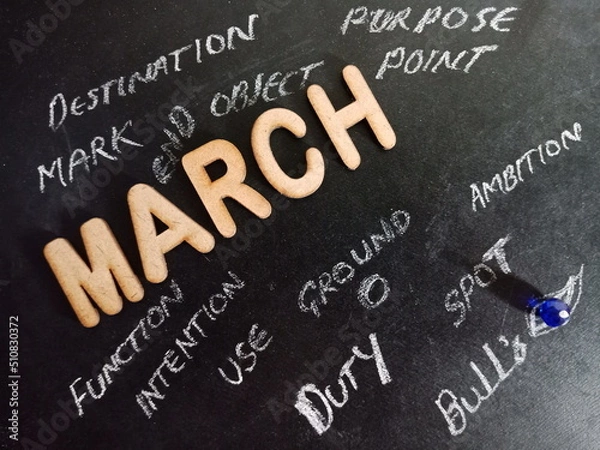 DESTINATION
PURPOSE
POINT
MARK
END
OBJECT
MARCH
AMBITION
GROUND
O
SPOT
FUNCTION
INTENTION
USE
DUTY
Bull's
Adobe Stock | #510830372